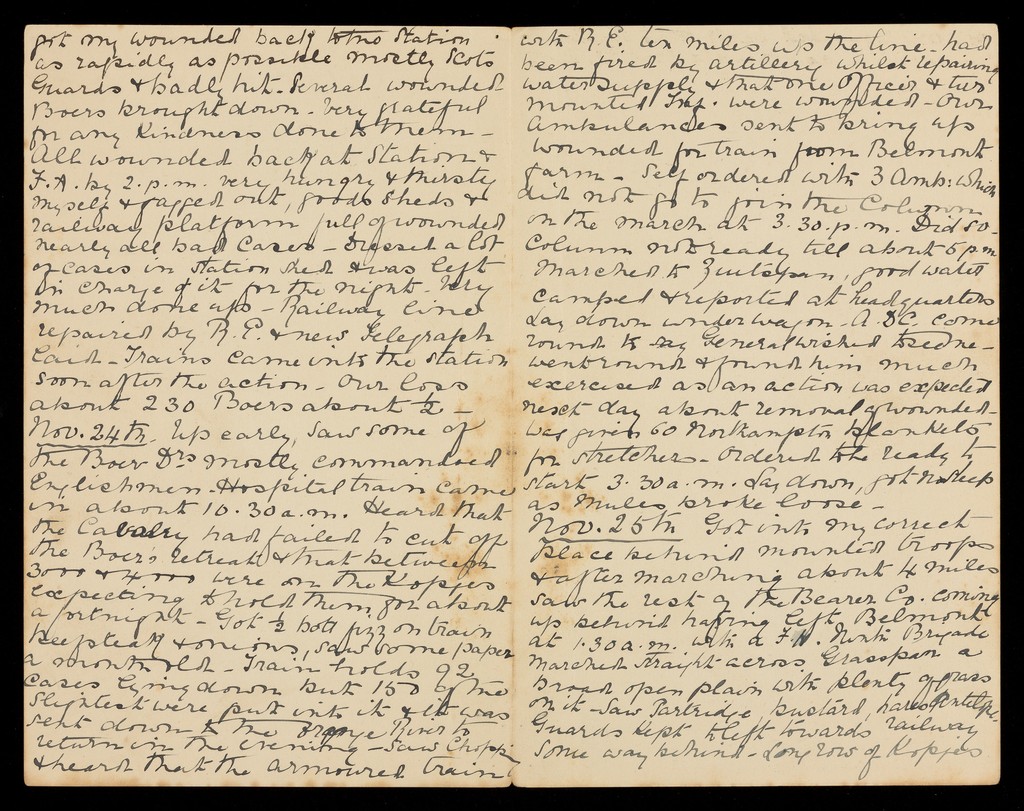 got my wounded back to the Station
as rapidly as possible mostly Scots
Guards & badly hit. Several wounded
Boers brought down. Very grateful
for any kindness done to them -
All wounded back at Station &
F.A. by 2.p.m. very hungry & thirsty
myself & fagged out, goods sheds &
railway platform full of wounded
nearly all bad cases - Dressed a lot
of cases in station shed & was left
in charge of it for the night. Very
much done up - Railway line
repaired by R.E. & new Telegraph
laid - Trains came into the station
soon after the action - Our loss
about 230 Boers about ½ -
Nov. 24th. Up early, saw some of
the Boer Drs mostly commandeered
Englishmen. Hospital train came
in about 10.30 a.m. Heard that
the Cavalry had failed to cut off
the Boer's retreat & that between
3000 & 4000 were on the Kopjes
expecting to hold them for about
a fortnight - Got ½ bott fizz on train
beefsteak & onions, saw some papers
a month old - Train holds 92
cases lying down but 150 of the
slightest were put into it & it was
sent down to the Orange River to
return in the evening - Saw
& heard that the armoured train
with R.E. ten miles up the line - had
been fired by artillery whilst repairing
water supply & that one Officer & two
mounted Inf. were wounded - Our
Ambulances sent to bring up
wounded for train from Belmont
farm - Self ordered with 3 Amb: which
did not go to join the Column
on the march at 3.30.p.m. Did so -
Column not ready till about 5 p.m
Marched to , good water
camped & reported at headquarters
Lay down under wagon - A.DC. come
round to say General wished to see me -
went round & found him much
exercised as an action was expected
next day about removal of wounded -
was given 60 Northampton blankets
for stretchers - Ordered to be ready to
start 3.30 a.m. Lay down, got no sleep
as mules broke loose -
Nov. 25th Got into my correct
place behind mounted troops
& after marching about 4 miles
saw the rest of the Bearer Co. coming
up behind having left Belmont
at 1.30 a.m. with a F.H. Ninth Brigade
marched straight across Graspan a
broad open plain with plenty of grass
on it - Saw Partridge bustard, hares
Guards kept to left towards railway
some way behind - Long row of Kopjes